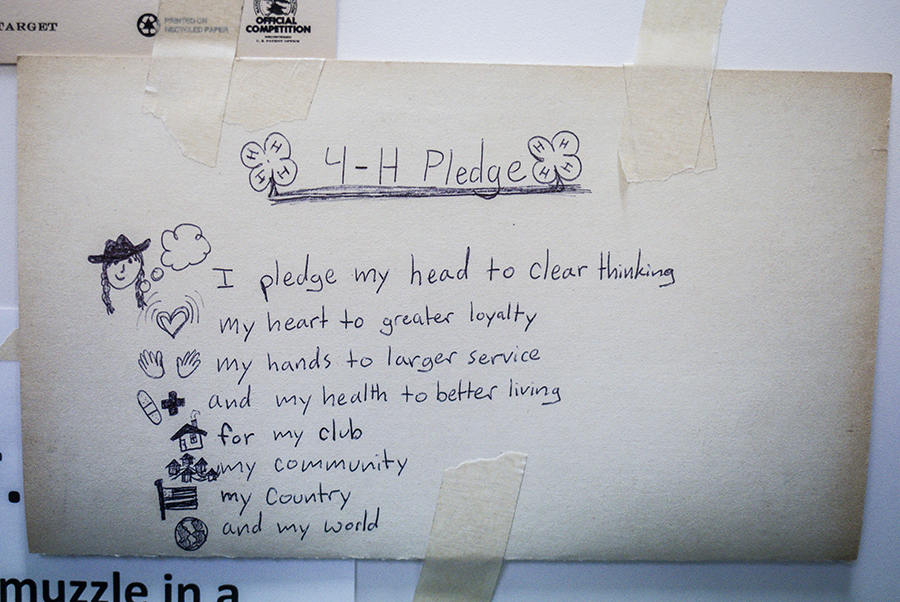 TARGET
PRINTED ON
RECYCLED PAPER
OFFICIAL
COMPETITION
4-H Pledge
H H H H
H H H H
I pledge my head to clear thinking
my heart to greater loyalty
my hands to larger service
and my health to better living
for my club
my community
my Country
and my world
muzzle in a